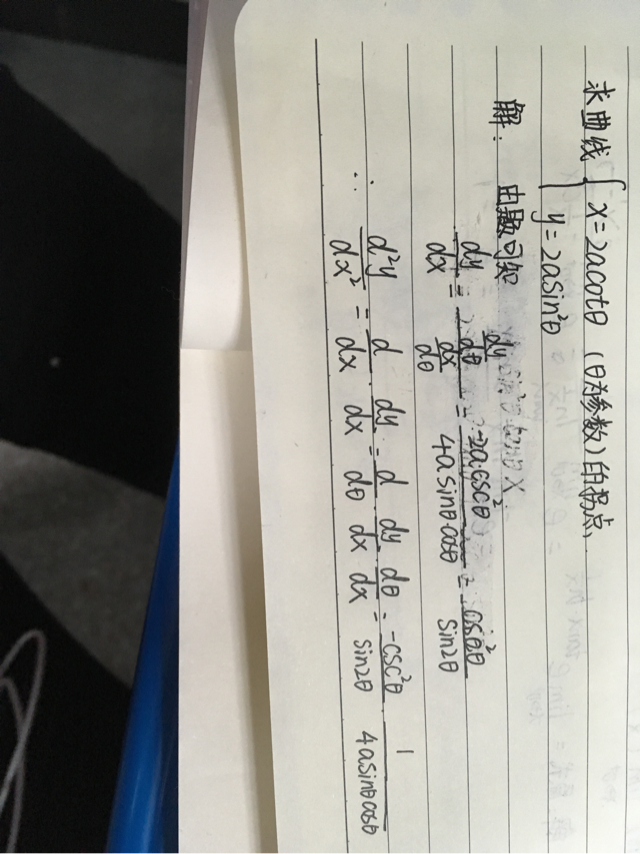 求曲线 { x=2acotθ (θ为参数)的拐点.
y=2asin²θ
解: 由题可知
dy/dx = (dy/dθ)/(dx/dθ) = -2a·csc²θ/4asinθ·cosθ = csc²θ/sin2θ
∴ d²y/dx² = d/dx · dy/dx = d/dθ · dy/dx · dθ/dx = -csc²θ/sin2θ · 1/4asinθcosθ